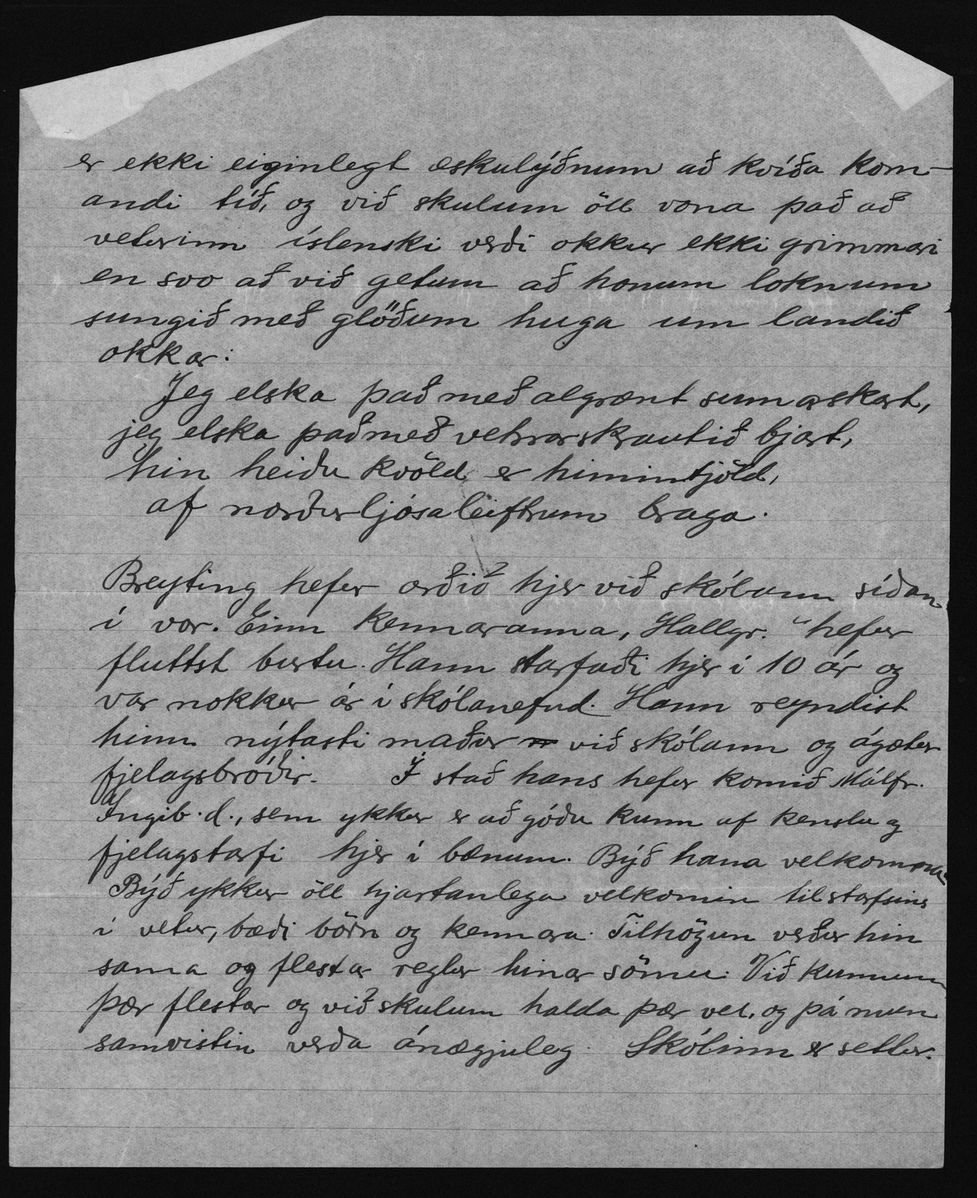 er ekki eiginlegt æskulýðnum að kvíða kom-
andi tíð, og við skulum öll vona það að
veturinn íslenski verði okkur ekki grimmari
en svo að við getum að honum loknum
sungið með glöðum huga um landið
okkar:
Jeg elska það með algrænt sumarskart,
jeg elska það með vetrarskrautið bjart,
hin heiðu kvöld, er himintjöld,
af norðurljósaleiftrum braga.
Breyting hefur orðið hjer við skólann síðan
í vor. Einn kennaranna, Hallgr. hefur
fluttst burtu. Hann starfaði hjer í 10 ár og
var nokkur ár í skólanefnd. Hann reyndist
hinn nýtasti maður við skólann og ágætur
fjelagsbróðir. Í stað hans hefur komið Málfr.
Ingib.d., sem ykkur er að góðu kunn af kenslu og
fjelagstarfi hjer í bænum. Býð hana velkomna
Býð ykkur öll hjartanlega velkomin til starfsins
í vetur, bæði börn og kennara. Tilhögun verður hin
sama og flestar reglur hinar sömu. Við kunnum
þær flestar og við skulum halda þær vel, og þá mun
samvistin verða ánægjuleg. Skólinn er settur.